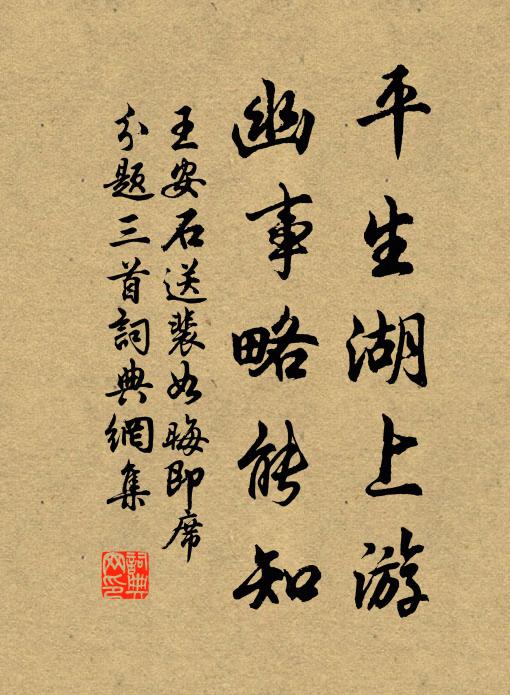 平生湖上游
幽事略能知
王安石送裴如晦即席
分题三首詞典網集
詞典網印